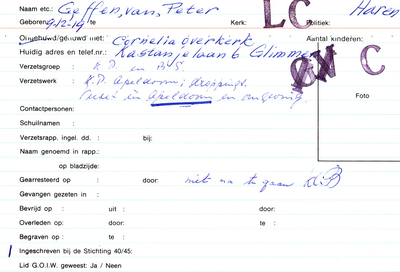 Naam etc.: Geffen, van, Peter LC Haren
Geboren: 9.12.19 te Kerk: Politiek:
Ongehuwd/gehuwd met: Cornelia Overkerk Aantal kinderen:
Huidig adres en telef.nr.: Kastanjelaan 6 Glimmen
Verzetsgroep : K.P. en B.S C
Verzetswerk : K.P. Apeldoorn; droppings. Foto
in Apeldoorn en omgeving
Contactpersonen:
Schuilnamen :
Verzetsrapp. ingel. dd. : bij:
Naam genoemd in rapp.:
op bladzijde:
Gearresteerd op : door: niet na te gaan
Gevangen gezeten in :
Bevrijd op : uit : door:
Overleden op: door: te :
Begraven op : te :
Ingeschreven bij de Stichting 40/45:
Lid G.O.I.W. geweest: Ja / Neen